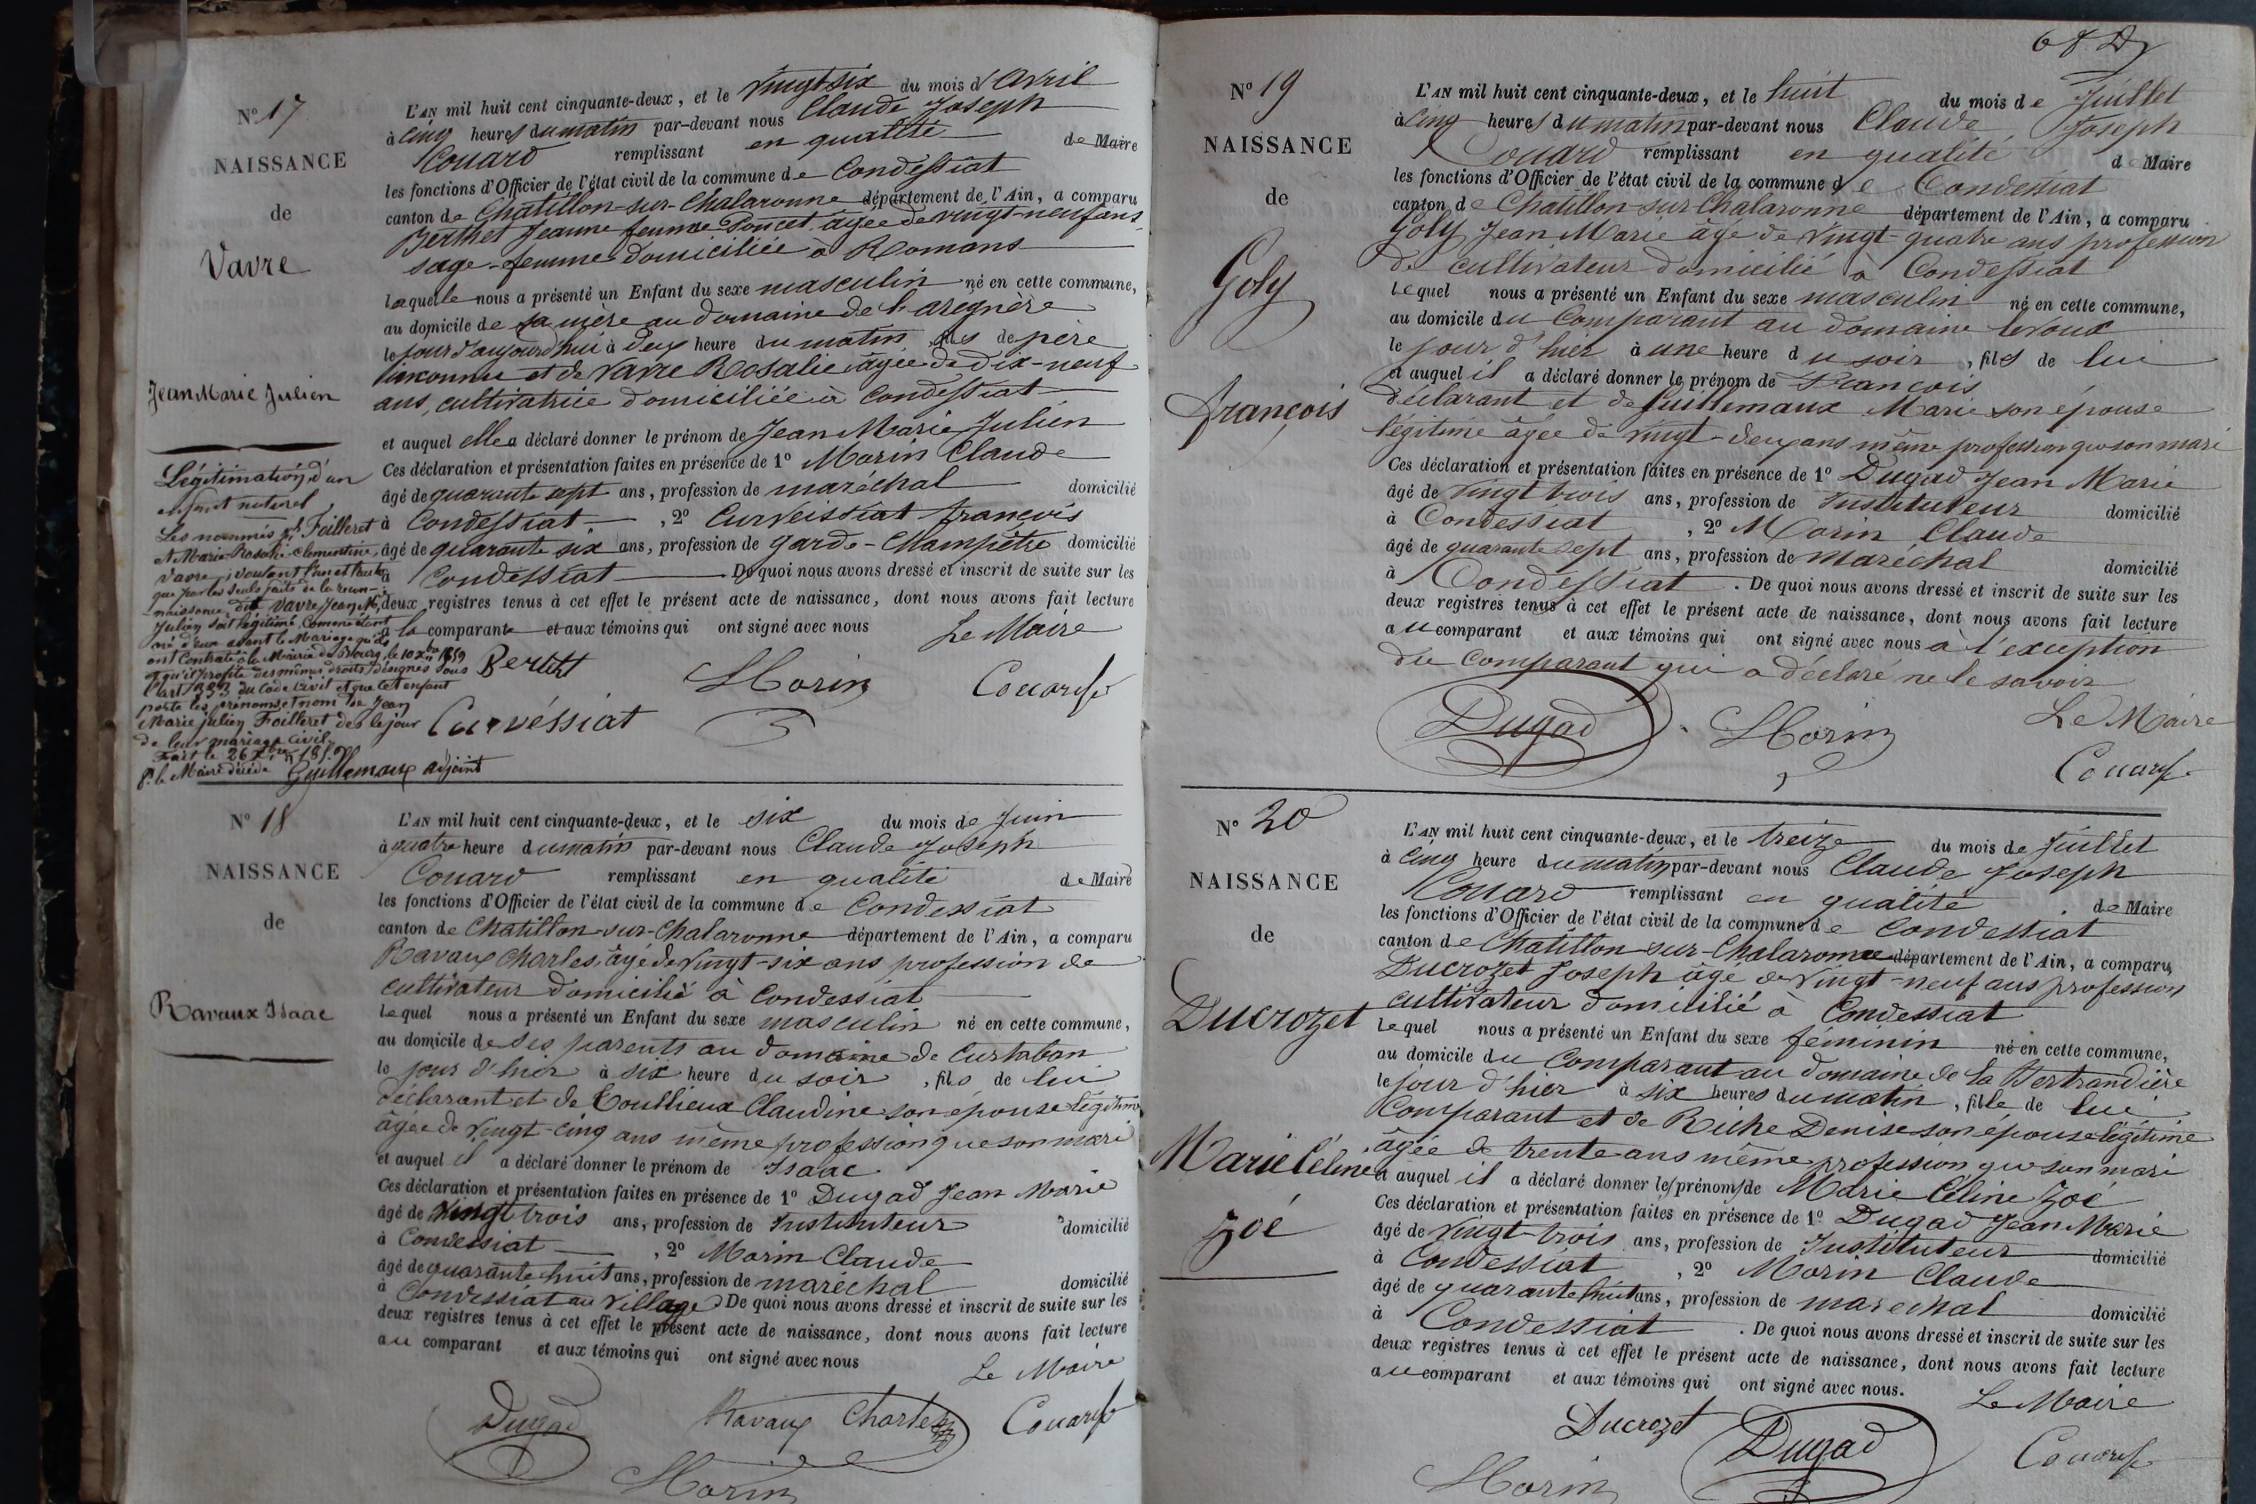 N° 17
NAISSANCE
de
Vavre
Jean Marie Julien
Légitimation d'un
enfant naturel
Les nommés Foilleret
et Marie Rosalie Clementine
Vavre, voulant l'un et l'autre
que par les seuls faits de la recon-
naissance, dit Vavre Jean M.
Julien soit légitimé, comme étant
né d'eux avant le Mariage qu'ils
ont contracté à la Mairie de Bourg, le 10 Xbre 1859
et qu'il profite des mêmes droits désignés sous
l'art 333 du Code Civil et que cet enfant
porte les prénoms et nom de Jean
Marie Julien Foilleret dès le jour
de leur mariage civil.
Fait le 26 Xbre
Pr le Maire décédé Guillemaux adjoint
L'AN mil huit cent cinquante-deux, et le vingt six du mois d'Avril
à cinq heures du matin par-devant nous Claude Joseph
Couard remplissant en qualité de Maire
les fonctions d'Officier de l'état civil de la commune de Condessiat
canton de Chatillon-sur-Chalaronne département de l'Ain, a comparu
Berthet Jeanne femme Poncet âgée de vingt-neuf ans,
sage-femme domiciliée à Romans
laquelle nous a présenté un Enfant du sexe masculin né en cette commune,
au domicile de sa mère au domaine de
le jour d'aujourd'hui à deux heure du matin, fils de père
inconnu et de Vavre Rosalie âgée de dix-neuf
ans, cultivatrice domiciliée à Condessiat
et auquel elle a déclaré donner le prénom de Jean Marie Julien
Ces déclaration et présentation faites en présence de 1° Morin Claude
âgé de quarante sept ans, profession de maréchal domicilié
à Condessiat, 2° Curveissiat françois
âgé de quarante six ans, profession de garde-Champêtre domicilié
à Condessiat. De quoi nous avons dressé et inscrit de suite sur les
deux registres tenus à cet effet le présent acte de naissance, dont nous avons fait lecture
à la comparante et aux témoins qui ont signé avec nous Le Maire
Berthet Morin Couard
Curvéssiat
N° 18
NAISSANCE
de
Ravaux Isaac
L'AN mil huit cent cinquante-deux, et le six du mois de Juin
à quatre heure du matin par-devant nous Claude Joseph
Couard remplissant en qualité de Maire
les fonctions d'Officier de l'état civil de la commune de Condessiat
canton de Chatillon-sur-Chalaronne département de l'Ain, a comparu
Ravaux Charles, âgé de vingt-six ans profession de
cultivateur domicilié à Condessiat
Lequel nous a présenté un Enfant du sexe masculin né en cette commune,
au domicile de ses parents au domaine de Curtaban
le jour d'hier à six heure du soir, fils de lui
déclarant et de Toullieux Claudine son épouse légitime
âgée de vingt-cinq ans même profession que son mari
et auquel il a déclaré donner le prénom de Isaac
Ces déclaration et présentation faites en présence de 1° Dugad Jean Marie
âgé de vingt trois ans, profession de Instituteur domicilié
à Condessiat, 2° Morin Claude
âgé de quarante huit ans, profession de maréchal domicilié
à Condessiat au village. De quoi nous avons dressé et inscrit de suite sur les
deux registres tenus à cet effet le présent acte de naissance, dont nous avons fait lecture
au comparant et aux témoins qui ont signé avec nous
Le Maire
Dugad Ravaux Charles Couard
Morin
68
N° 19
NAISSANCE
de
Goly
françois
L'AN mil huit cent cinquante-deux, et le huit du mois de Juillet
à cinq heures du matin par-devant nous Claude Joseph
Couard remplissant en qualité de Maire
les fonctions d'Officier de l'état civil de la commune de Condessiat
canton de Chatillon-sur-Chalaronne département de l'Ain, a comparu
Goly Jean Marie âgé de vingt-quatre ans profession
de cultivateur domicilié à Condessiat
Lequel nous a présenté un Enfant du sexe masculin né en cette commune,
au domicile du Comparant au domaine
le jour d'hier à une heure du soir, fils de lui
et auquel il a déclaré donner le prénom de François
déclarant et de Guillemaux Marie son épouse
légitime âgée de vingt-deux ans même profession que son mari
Ces déclaration et présentation faites en présence de 1° Dugad Jean Marie
âgé de vingt trois ans, profession de Instituteur domicilié
à Condessiat, 2° Morin Claude
âgé de quarante sept ans, profession de maréchal domicilié
à Condessiat. De quoi nous avons dressé et inscrit de suite sur les
deux registres tenus à cet effet le présent acte de naissance, dont nous avons fait lecture
au comparant et aux témoins qui ont signé avec nous à l'exception
du comparant qui a déclaré ne le savoir
Dugad Morin Le Maire
Couard
N° 20
NAISSANCE
de
Ducrozet
Marie Céline
Zoé
L'AN mil huit cent cinquante-deux, et le treize du mois de Juillet
à cinq heure du matin par-devant nous Claude Joseph
Couard remplissant en qualité de Maire
les fonctions d'Officier de l'état civil de la commune de Condessiat
canton de Chatillon-sur-Chalaronne département de l'Ain, a comparu
Ducrozet Joseph âgé de vingt-neuf ans profession
cultivateur domicilié à Condessiat
Lequel nous a présenté un Enfant du sexe féminin né en cette commune,
au domicile du Comparant au domaine de la Bertrandière
le jour d'hier à six heures du matin, fille de lui
Comparant et de Riche Denise son épouse légitime
âgée de trente ans même profession que son mari
et auquel il a déclaré donner les prénoms de Marie Céline Zoé
Ces déclaration et présentation faites en présence de 1° Dugad Jean Marie
âgé de vingt-trois ans, profession de Instituteur domicilié
à Condessiat, 2° Morin Claude
âgé de quarante huit ans, profession de marechal domicilié
à Condessiat. De quoi nous avons dressé et inscrit de suite sur les
deux registres tenus à cet effet le présent acte de naissance, dont nous avons fait lecture
au comparant et aux témoins qui ont signé avec nous.
Le Maire
Ducrozet Dugad Couard
Morin